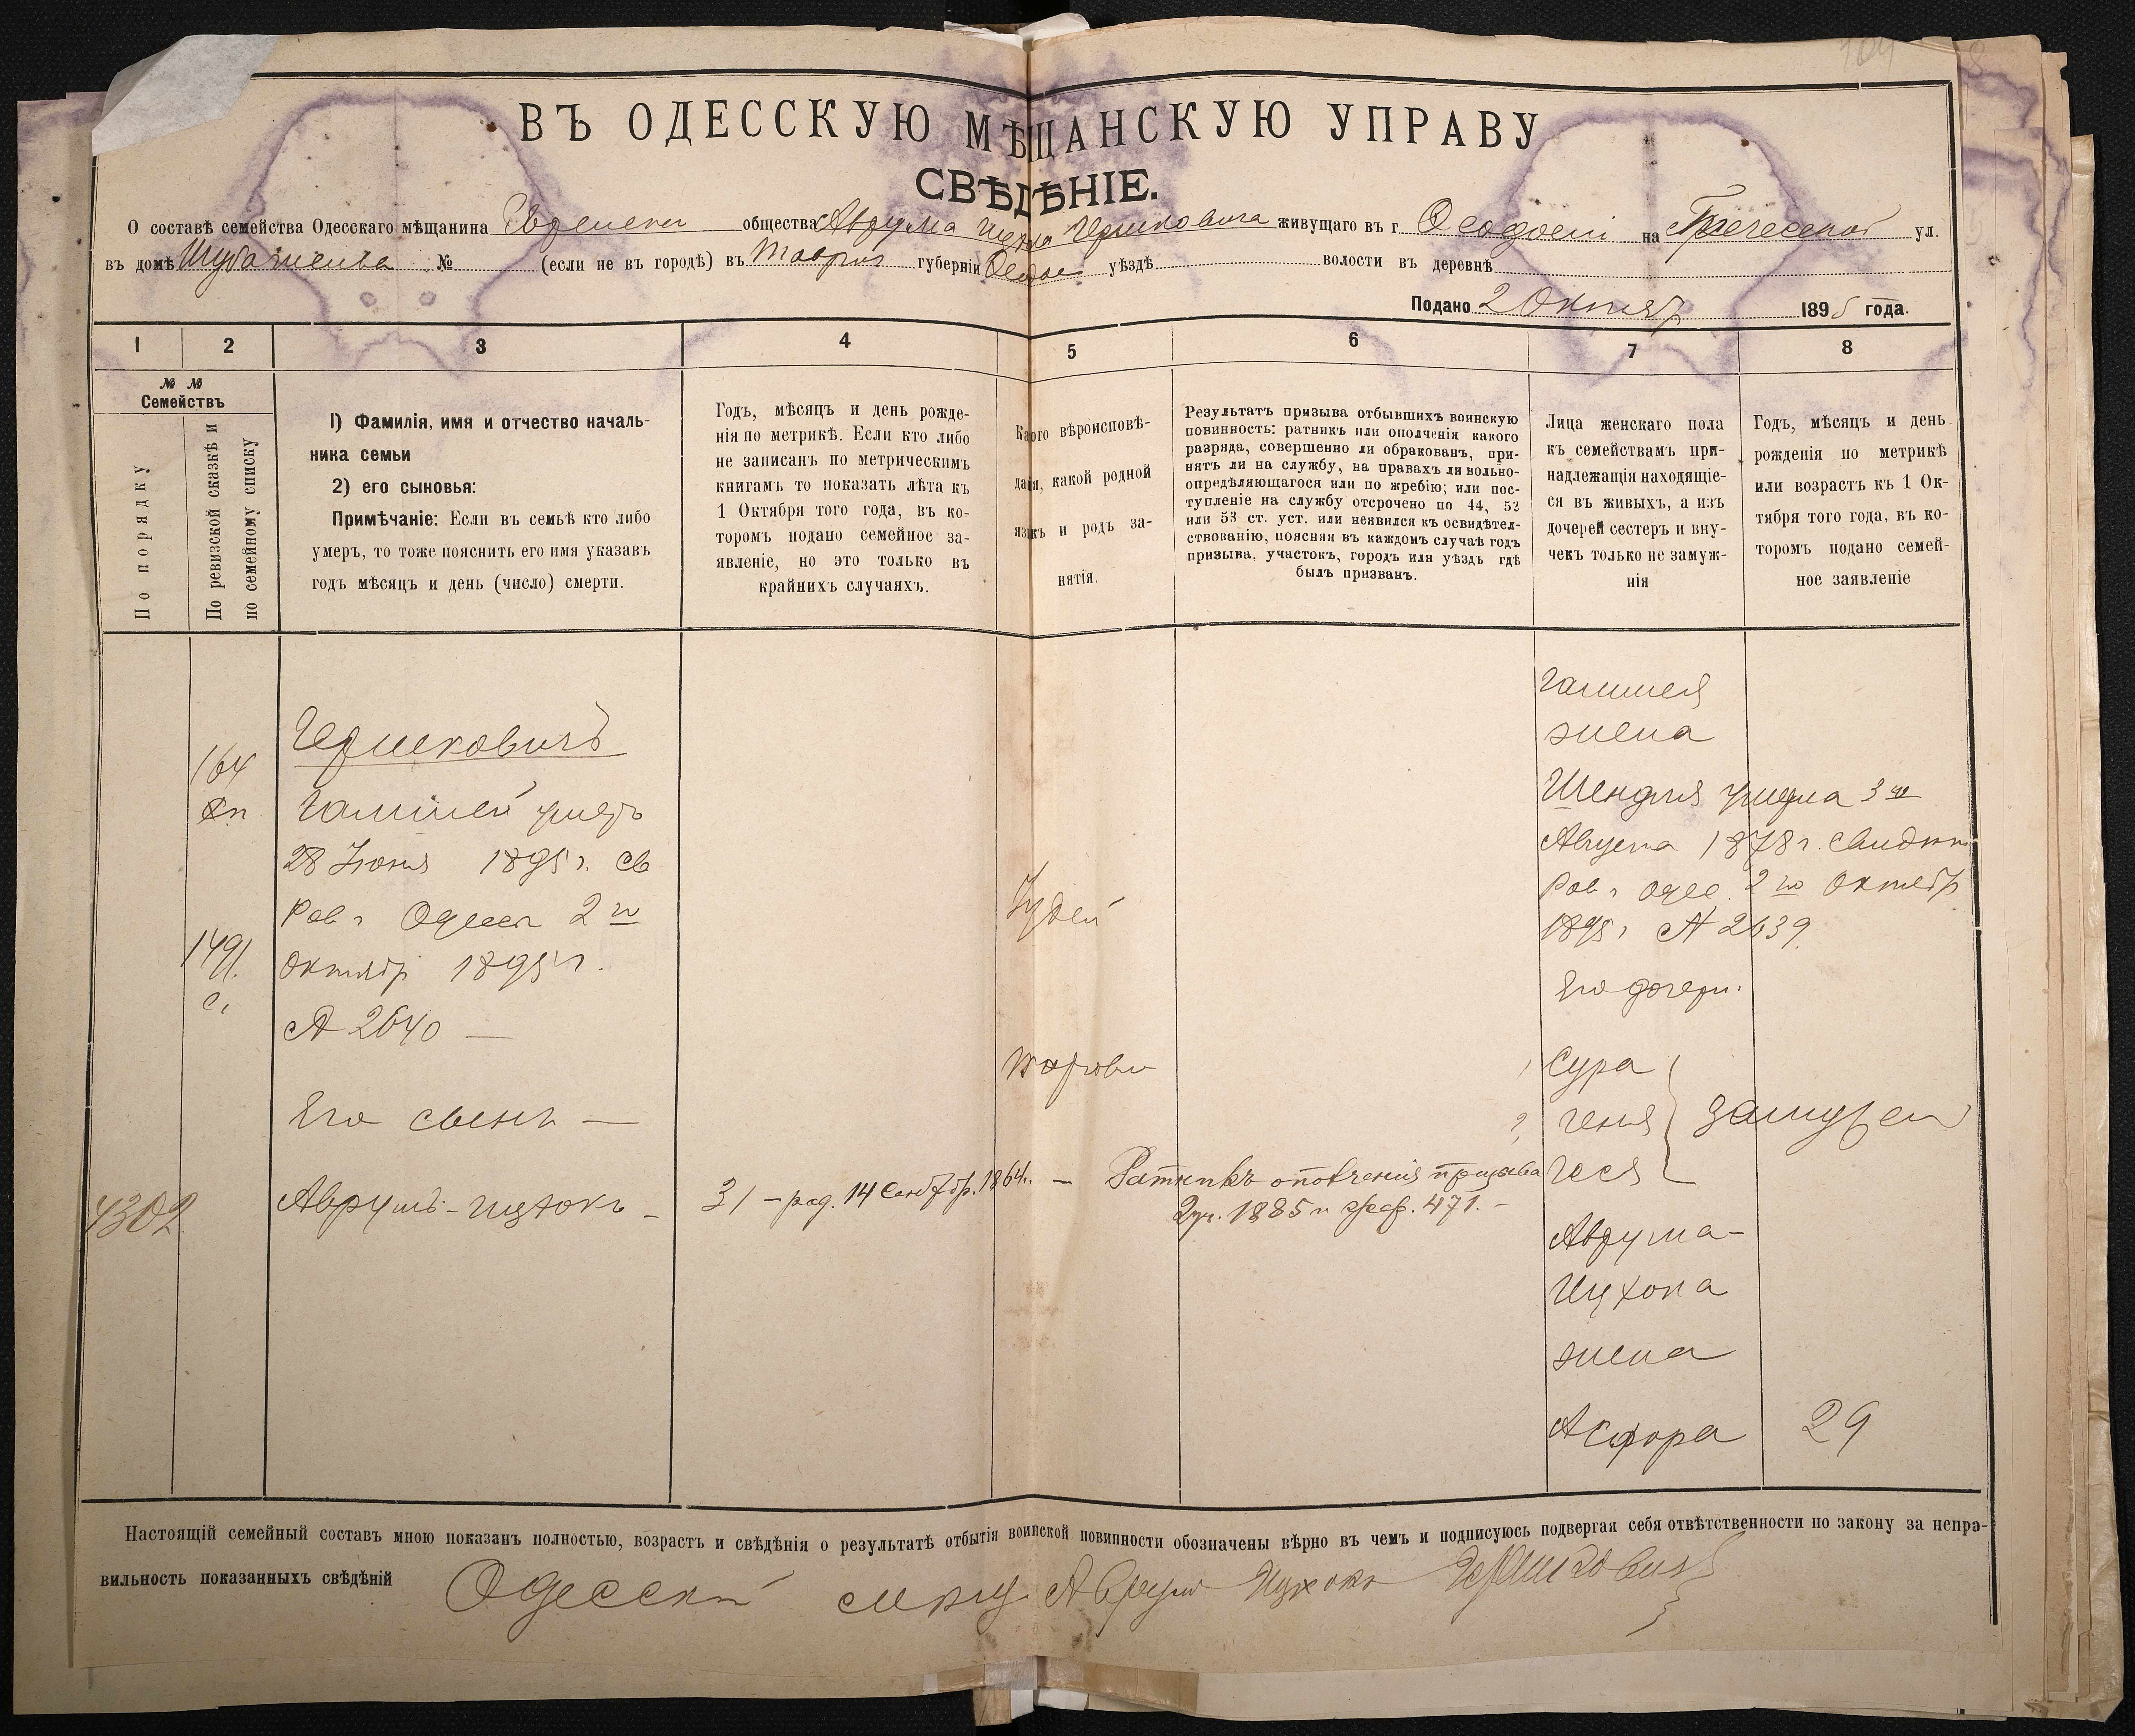 104
ВЪ ОДЕССКУЮ МѢЩАНСКУЮ УПРАВУ
СВѢДѢНІЕ.
О составѣ семейства Одесскаго мѣщанина общества Аврума Гершковича живущаго въ г. Ѳеодосіи на Греческой ул.
въ домѣ № (если не въ городѣ) въ Таврич губерніи Ѳеодос уѣздѣ волости въ деревнѣ
Подано 2 Октяб 1895 года.
1 2 3 4 5 6 7 8
№ № Семействъ
По порядку
По ревизской сказкѣ и по семейному списку
1) Фамилія, имя и отчество началь-
ника семьи
2) его сыновья:
Примѣчаніе: Если въ семьѣ кто либо
умеръ, то тоже пояснить его имя указавъ
годъ мѣсяцъ и день (число) смерти.
Годъ, мѣсяцъ и день рожде-
нія по метрикѣ. Если кто либо
не записанъ по метрическимъ
книгамъ то показать лѣта къ
1 Октября того года, въ ко-
торомъ подано семейное за-
явленіе, но это только въ
крайнихъ случаяхъ.
Какого вѣроисповѣ-
данія, какой родной
языкъ и родъ за-
нятія.
Результатъ призыва отбывшихъ воинскую
повинность: ратникъ или ополченія какого
разряда, совершенно ли обракованъ, при-
нятъ ли на службу, на правахъ ли вольно-
опредѣляющагося или по жребію; или пос-
тупленіе на службу отсрочено по 44, 52
или 53 ст. уст. или неявился къ освидѣтел-
ствованію, поясняя въ каждомъ случаѣ годъ
призыва, участокъ, городъ или уѣздъ гдѣ
былъ призванъ.
Лица женскаго пола
къ семействамъ при-
надлежащія находящіе-
ся въ живыхъ, а изъ
дочерей сестеръ и вну-
чекъ только не замуж-
нія
Годъ, мѣсяцъ и день
рожденія по метрикѣ
или возрастъ къ 1 Ок-
тября того года, въ ко-
торомъ подано семей-
ное заявленіе
164
1491
4302
Гершковичъ
умеръ
28 Іюня 1895 г. св
Рав. г Одессы 2 го
октябр 1895 г.
№ 2640 —
Его сынъ —
Аврумъ-Ицхокъ —
31 – род. 14 Сентябр. 1864 г. —
Іудей
торговл
Ратникъ ополченія призыва
2 уч. 1885 г. жреб. 471. –
жена
умерла 3 го
Августа 1878 г.
Рав. г Одес. 2 го Октябр
1895 г № 2639
Его дочери.
1 Сура
2, Геня замужем
Геся
Аврума-
Ицхока
жена
29
Настоящій семейный составъ мною показанъ полностью, возрастъ и свѣдѣнія о результатѣ отбытія воинской повинности обозначены вѣрно въ чемъ и подписуюсь подвергая себя отвѣтственности по закону за непра-
вильность показанныхъ свѣдѣній Одесскій мѣщ Аврум Ицхокъ Гершкович